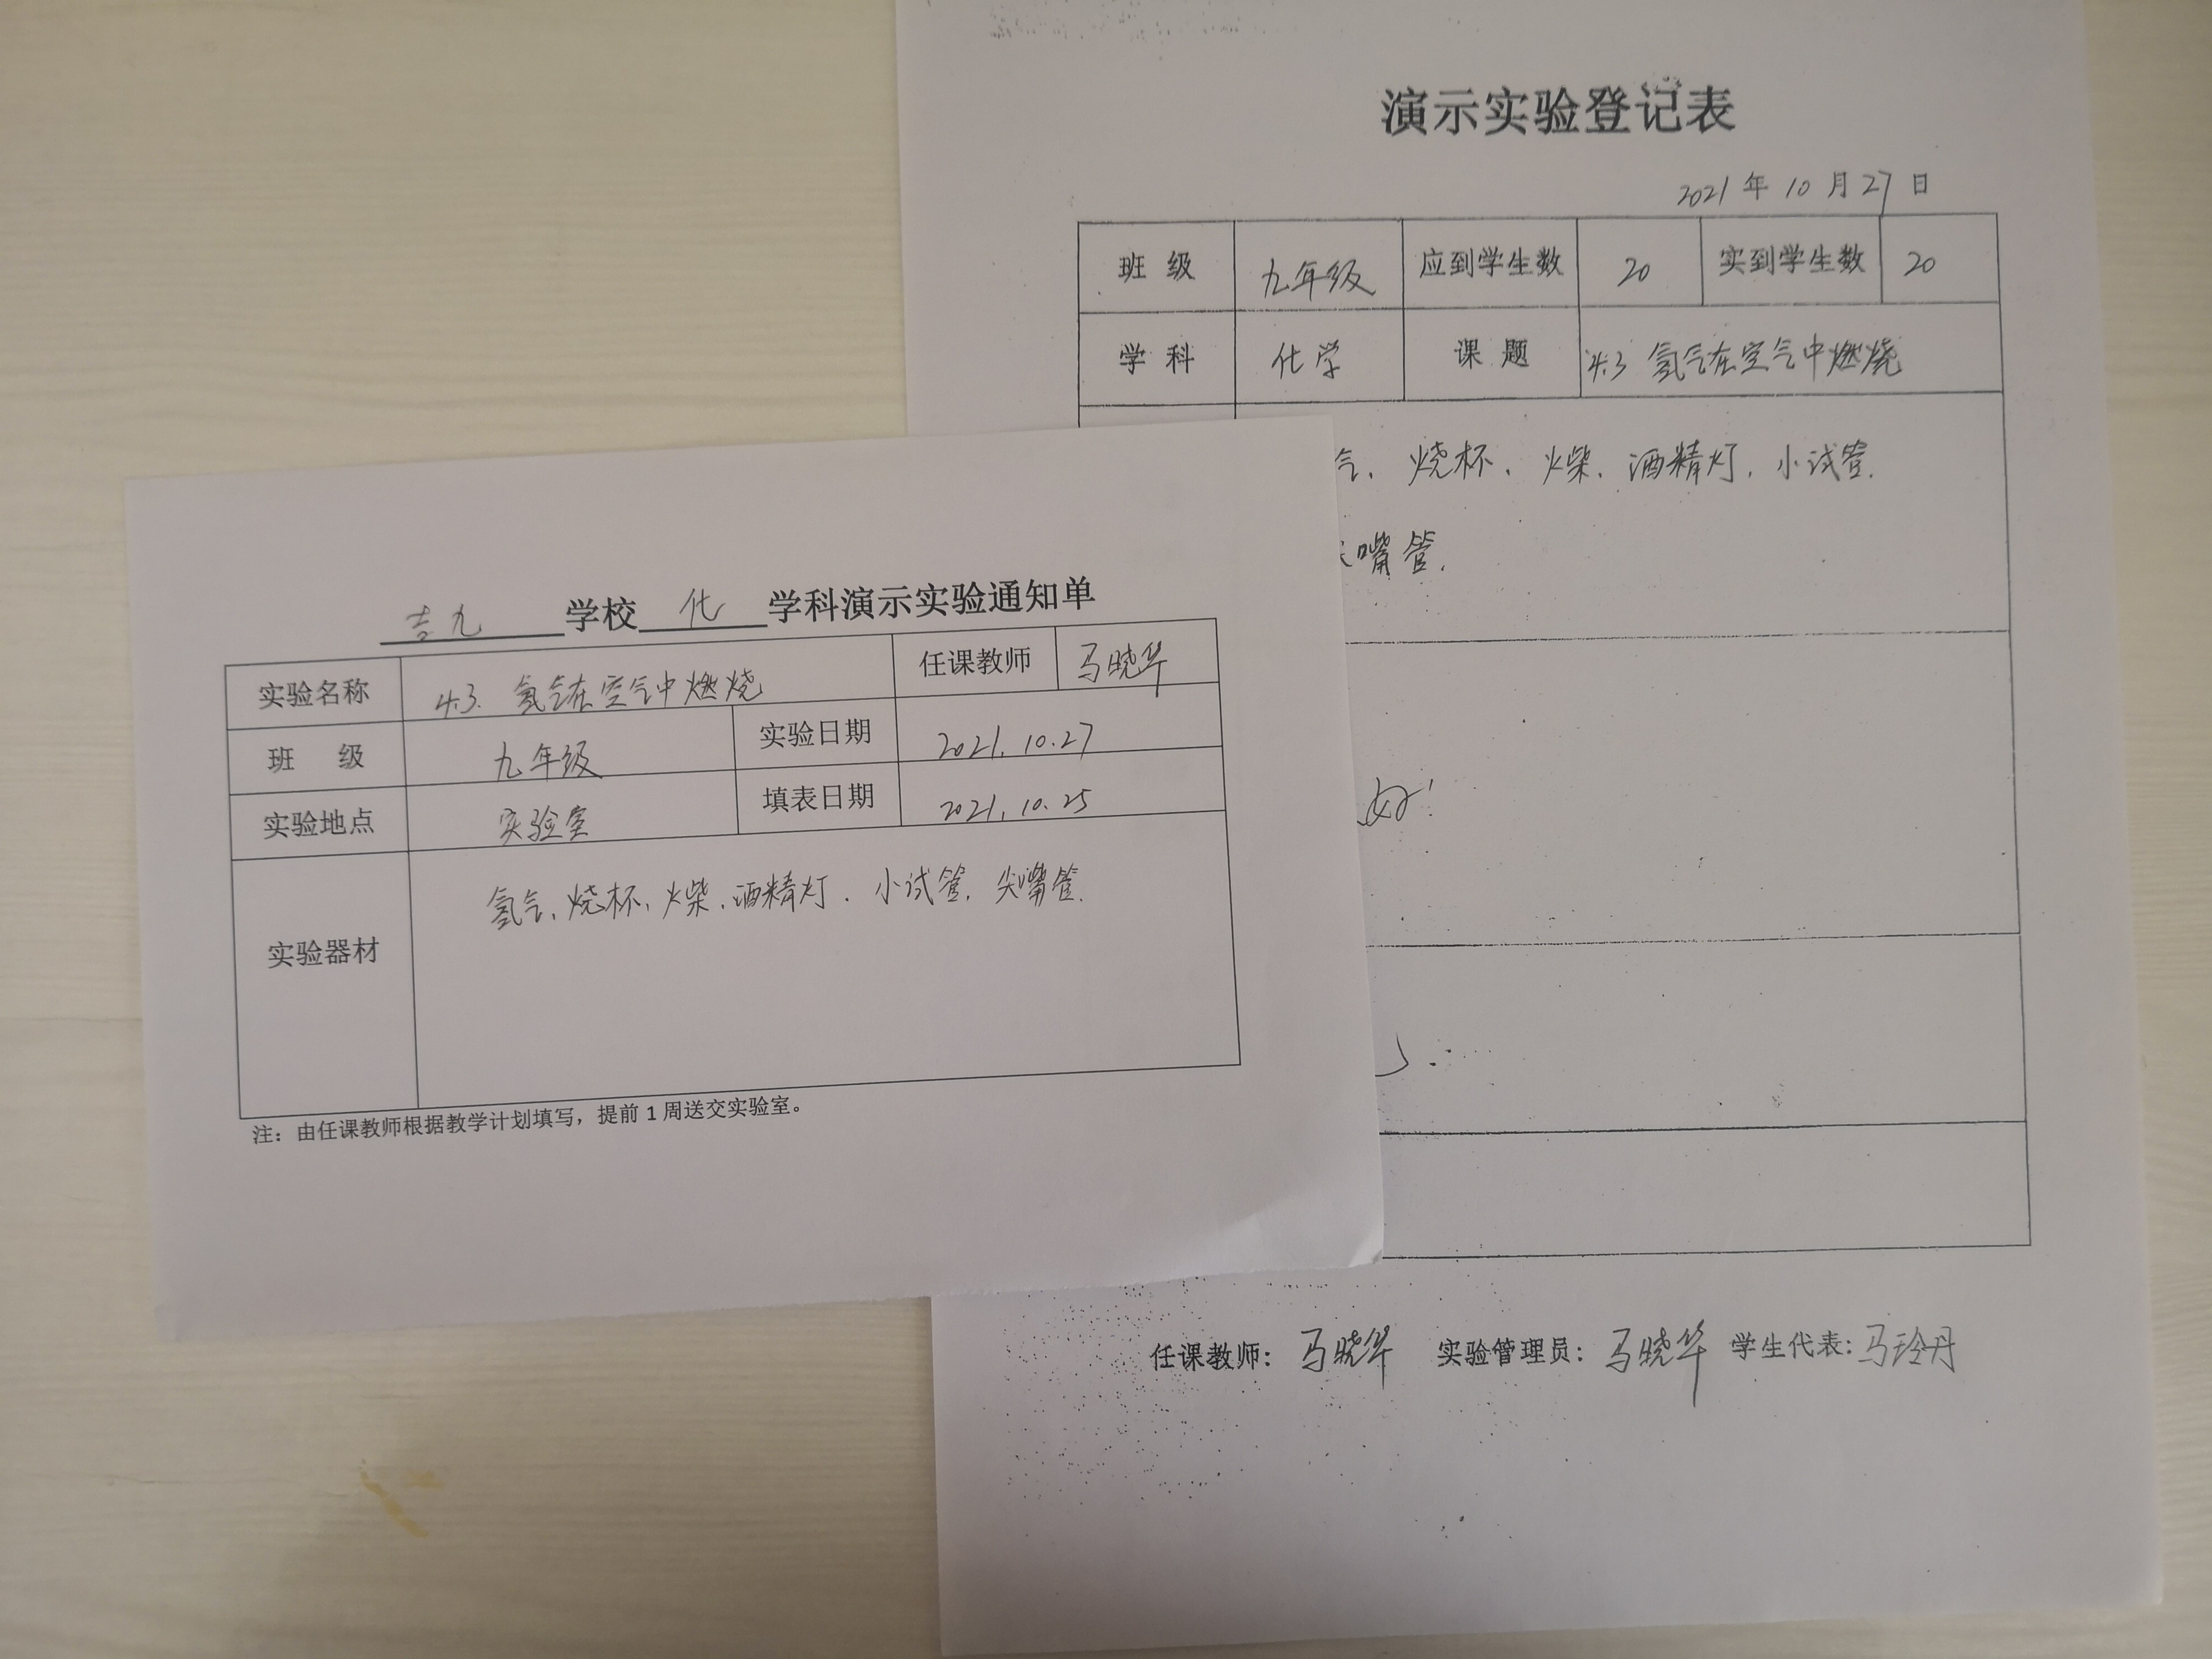 演示实验登记表
2021年10月27日
班 级 九年级 应到学生数 20 实到学生数 20
学 科 化学 课 题 4.3 氢气在空气中燃烧
气、烧杯、火柴、酒精灯、小试管、
嘴管.
好!
任课教师: 马晓华 实验管理员: 马晓华 学生代表: 马玲丹
吉九 学校 化 学科演示实验通知单
实验名称 4.3. 氢气在空气中燃烧 任课教师 马晓华
班 级 九年级 实验日期 2021.10.27
实验地点 实验室 填表日期 2021.10.25
实验器材 氢气、烧杯、火柴、酒精灯、小试管、尖嘴管.
注：由任课教师根据教学计划填写，提前1周送交实验室。